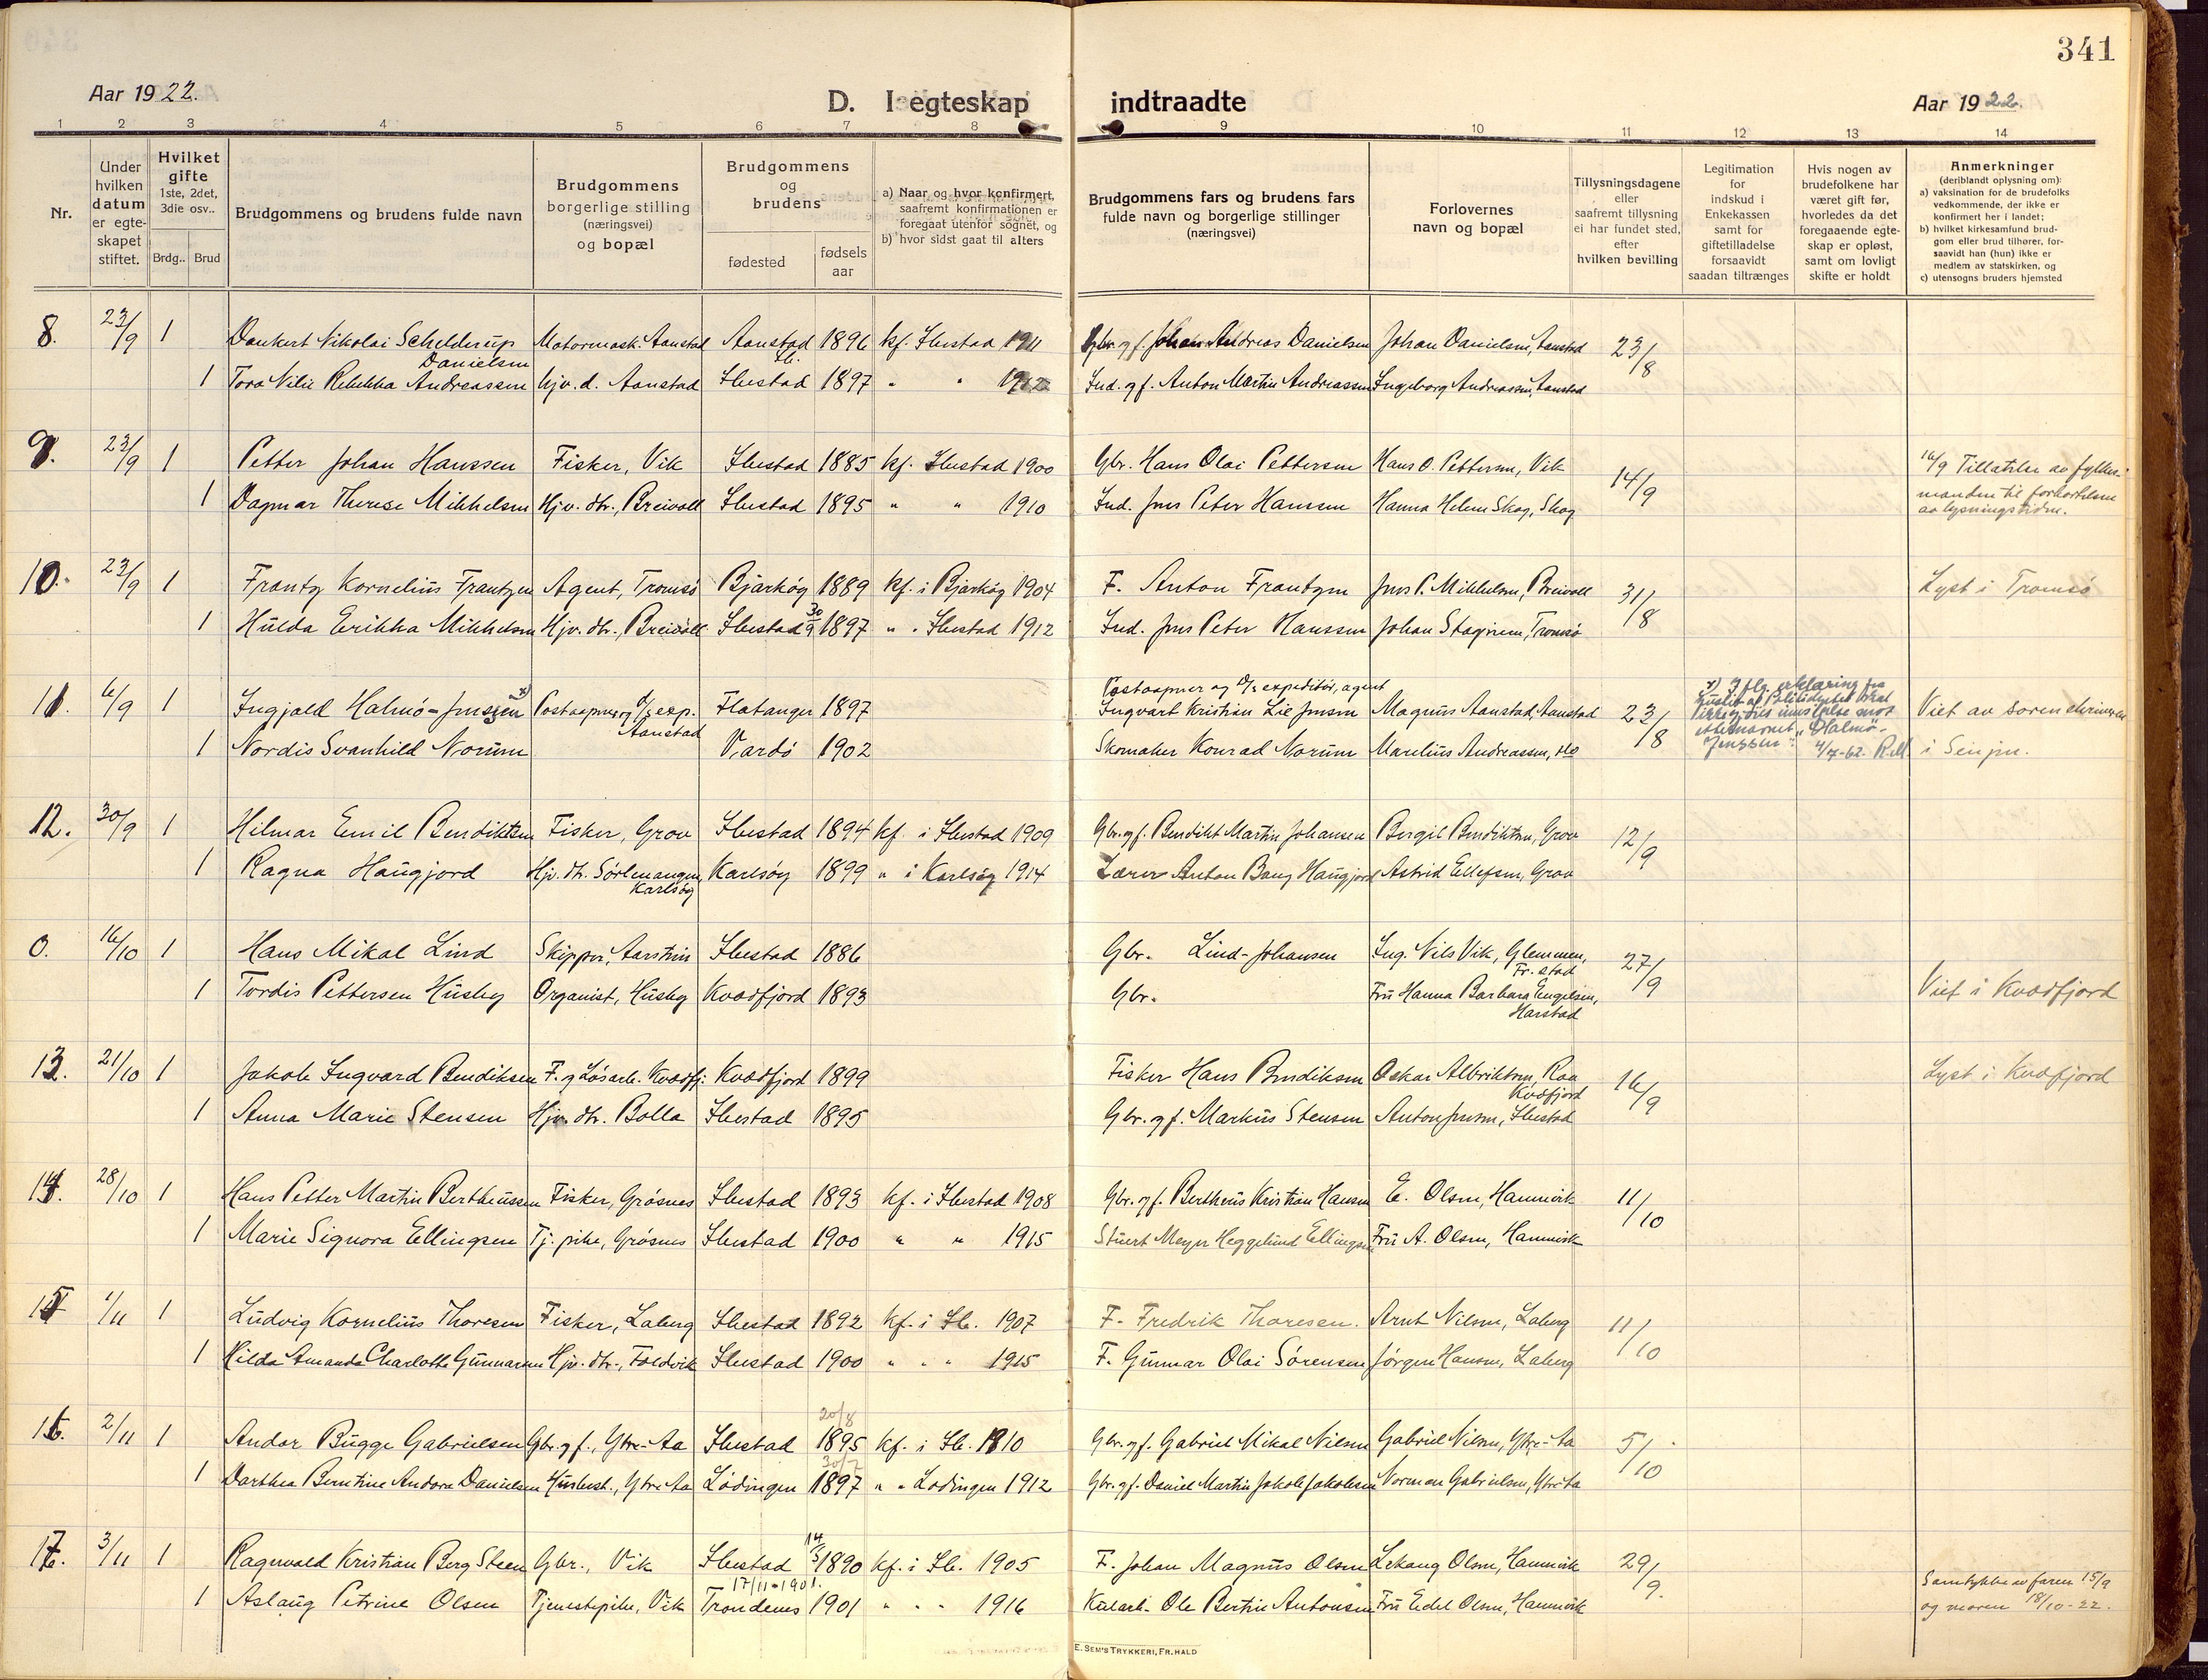 341
Aar 1922. D. I egteskap indtraadte Aar 1922.
1 2 3 4 5 6 7 8 9 10 11 12 13 14
Nr.
Under hvilken datum er egteskapet stiftet.
Hvilket gifte 1ste, 2det, 3die osv..
Brdg.. Brud
Brudgommens og brudens fulde navn
Brudgommens borgerlige stilling (næringsvei) og bopæl
Brudgommens og brudens
fødested
fødsels aar
a) Naar og hvor konfirmert, saafremt konfirmationen er foregaat utenfor sognet, og
b) hvor sidst gaat til alters
Brudgommens fars og brudens fars fulde navn og borgerlige stillinger (næringsvei)
Forlovernes navn og bopæl
Tillysningsdagene eller saafremt tillysning ei har fundet sted, efter hvilken bevilling
Legitimation for indskud i Enkekassen samt for giftetilladelse forsaavidt saadan tiltrænges
Hvis nogen av brudefolkene har været gift før, hvorledes da det foregaaende egteskap er opløst, samt om lovligt skifte er holdt
Anmerkninger (deriblandt oplysning om):
a) vaksination for de brudefolks vedkommende, der ikke er konfirmert her i landet;
b) hvilket kirkesamfund brudgom eller brud tilhører, forsaavidt han (hun) ikke er medlem av statskirken, og
c) utensogns bruders hjemsted
8. 23/9 1 Dankert Nikolai Schelderup Danielsen Motormask. Aanstad Aanstad Ib. 1896 kf. Ibestad 1911 Gbr. og f. Johan Andreas Danielsen Johan Danielsen, Aanstad 23/8
1 Tora Nilie Rebekka Andreassen hjv. d. Aanstad Ibestad 1897 " " 1912 Ind. og f. Anton Martin Andreassen Ingeborg Andreassen, Aanstad
9. 23/9 1 Petter Johan Hanssen Fisker, Vik Ibestad 1885 kf. Ibestad 1900 Gbr. Hans Olai Pettersen Hans O. Pettersen, Vik 14/9 16/9 Tillatelse av fylkesmanden til forkortelse av lysningstiden.
1 Dagmar Therese Mikkelsen Hjv. dtr., Breivoll Ibestad 1895 " " 1910 Ind. Jens Peter Hansen Hanna Helene Skog, Skog
10. 23/9 1 Frantz Kornelius Frantzen Agent, Tromsö Bjarköy 1889 kf. i Bjarköy 1904 F. Anton Frantzen Jens P. Mikkelsen, Breivoll 31/8 Lyst i Tromsö
1 Hulda Erikka Mikkelsen Hjv. dtr., Breivoll Ibestad 30/9 1897 " " Ibestad 1912 Ind. Jens Peter Hanssen Johan Tromsö
11. 6/9 1 Ingjald Halmö-Jenssen x) Postaapner og d/s exp. Aanstad Flatanger 1897 Postaapner og d/s expeditör, agent Ingvart Kristian Lie Jensen Magnus Aanstad, Aanstad 23/8 x) Iflg. erklæring fra Justis- og Politidepartementet "Halmö-Jenssen". 4/7-62. R.M. Viet av sorenskriveren i Senjen.
1 Nordis Svanhild Norum Vardö 1902 Skomaker Konrad Norum Marelius Andreassen, do
12. 30/9 1 Hilmar Emil Bendiktsen Fisker, Grov Ibestad 1894 kf. i Ibestad 1909 Gbr. og f. Bendikt Martin Johansen Bergit Bendiktsen, Grov 12/9
1 Ragna Haugjord Hjv. dt. Sörlenangen, Karlsöy Karlsöy 1899 " i Karlsöy 1914 Lærer Anton Bang Haugjord Astrid Ellefsen, Grov
0. 16/10 1 Hans Mikal Lind Skipper, Aarstein Ibestad 1886 Gbr. Lind-Johansen Ing. Nils Vik, Glemmen, Fr.stad 27/9 Viet i Kvædfjord
1 Tordis Pettersen Husby Organist, Husby Kvædfjord 1893 Gbr. Fru Hanna Barbara Engelsen, Harstad
13. 21/10 1 Jakob Ingvard Bendiksen F. og Lösarb. Kvædfj. Kvædfjord 1899 Fisker Hans Bendiksen Oskar Albriktsen, Raa Kvæfjord 16/9 Lyst i Kvæfjord
1 Anna Marie Stensen Hjv. dtr. Bolla Ibestad 1895 Gbr. og f. Markus Stensen Anton Jensen, Ibestad
14. 28/10 1 Hans Petter Martin Bertheussen Fisker, Grösnes Ibestad 1893 kf. i Ibestad 1908 Gbr. og f. Bertheus Kristian Hansen E. Olsen, Hamnvik 11/10
1 Marie Signora Ellingsen Tj. pike, Grösnes Ibestad 1900 " " 1915 Stuert Meyer Heggelund Ellingsen Fru A. Olsen, Hamnvik
15 1/11 1 Ludvig Kornelius Thoresen Fisker, Laberg Ibestad 1892 kf. i Ib. 1907 F. Fredrik Thoresen. Arnt Nilsen, Laberg 11/10
1 Hilda Amanda Charlotte Gunnarsen Hjv. dtr., Foldvik Ibestad 1900 " " " 1915 F. Gunnar Olai Sörensen Jörgen Hansen, Laberg
16. 2/11 1 Andor Bugge Gabrielsen Gbr. og f., Ytre-Aa Ibestad 20/8 1895 kf. i Ib. 1810 Gbr. og f. Gabriel Mikal Nilsen Gabriel Nilsen, Ytre-Aa 5/10
1 Dorthea Berntine Andora Danielsen Husbest., Ytre Aa Lödingen 30/7 1897 " " Lödingen 1912 Gbr. og f. Daniel Martin Jakob Jakobsen Norman Gabrielsen, Ytre-Aa
17. 3/11 1 Ragnvald Kristian Berg Steen Gbr., Vik Ibestad 14/3 1890 kf. i Ib. 1905 F. Johan Magnus Olsen Lekang Olsen, Hamnvik 29/9.
1 Aslaug Petrine Olsen Tjenestepike, Vik Trondenes 17/11-1901. 1901 " " " 1916 Kaiarb. Ole Bertin Antonsen Fru Edel Olsen, Hamnvik Samtykke av faren 15/9 og moren 18/10-22.
E. SEM'S TRYKKERI, FR.HALD